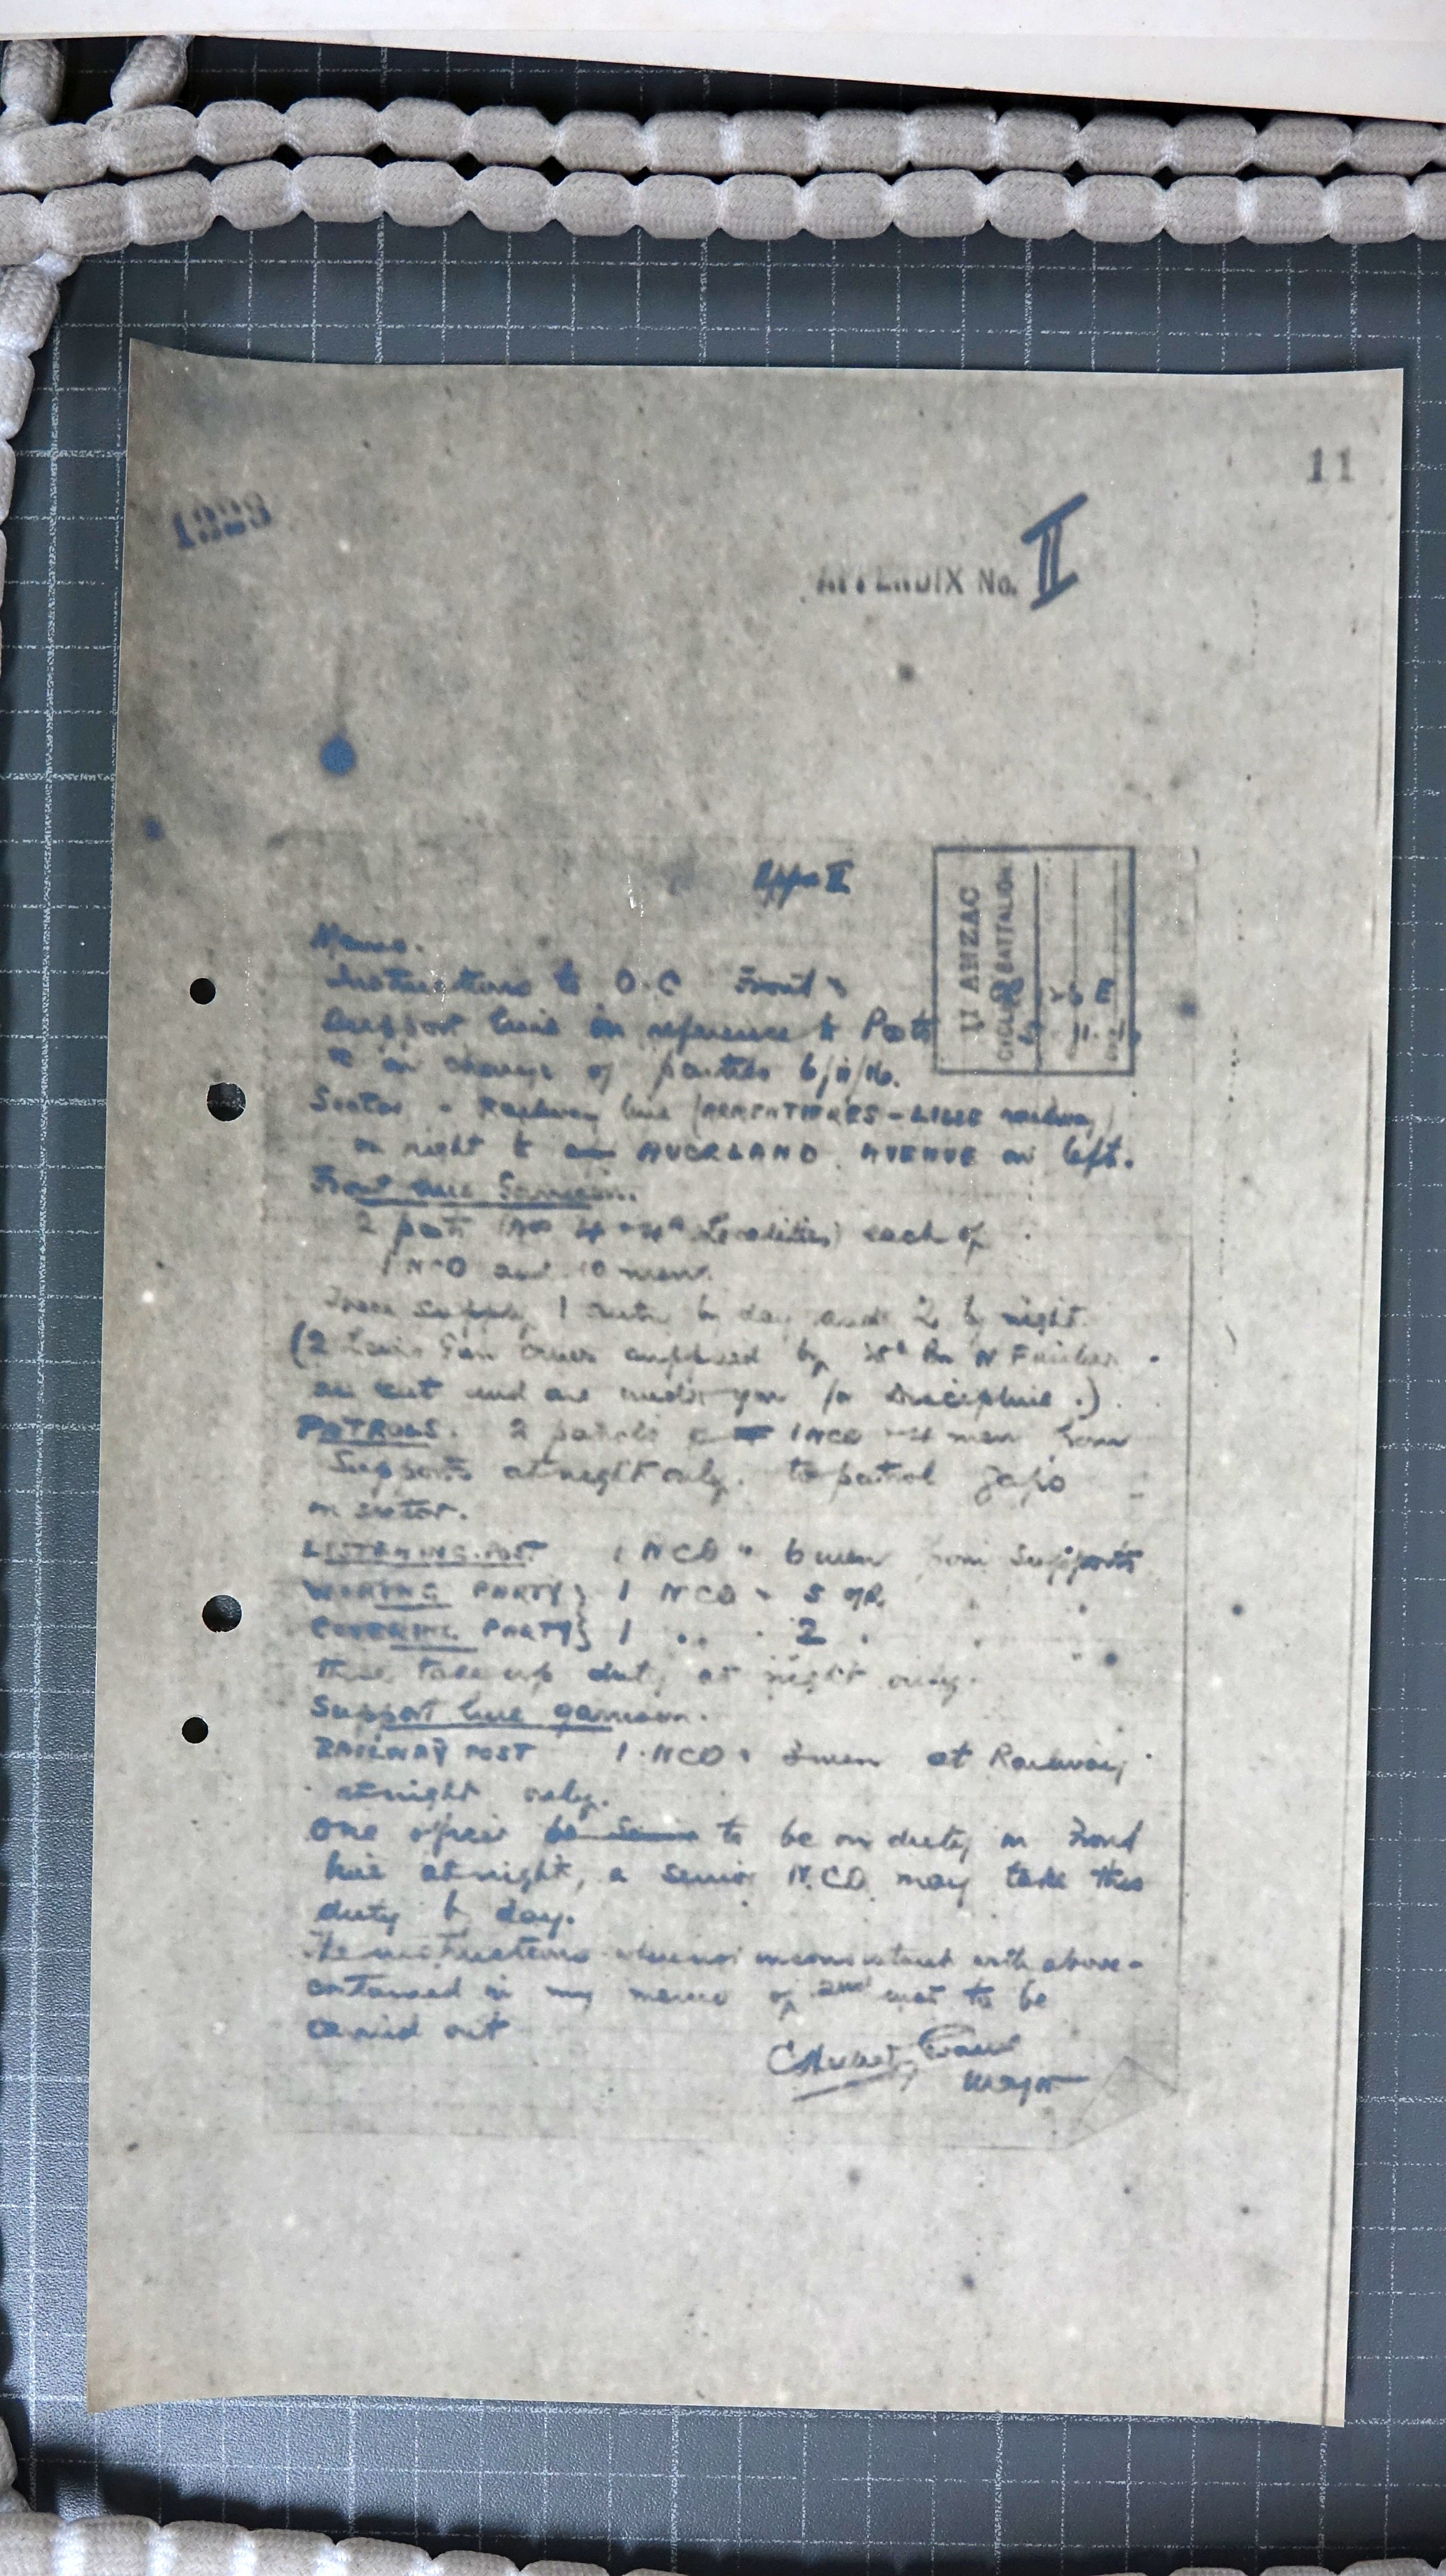 11
1323
APPENDIX No. II
App II
II ANZAC
CYCLIST BATTALION
Memo.
Instructions to O.C Front &
Support line in reference to Posts
on change of parties 6/11/16.
Sector - Railway line (ARMENTIERES - LILLE railway)
on right to AUCKLAND AVENUE on left.
Front line Garrison.
2 posts (Nos 4 Localities) each of
1 NCO and 10 men.
These supply 1 by day and 2 by night.
(2 Lewis Gun crews supplied by Bn N Fusiliers
and are under you for Discipline.)
PATROLS. 2 patrols 1 NCO 4 men from
Supports at night only. to patrol gaps
in sector.
LISTENING POST 1 NCO & 6 men from Supports
WORKING PARTY} 1 NCO & 5 OR.
COVERING PARTY} 1 .. 2
these take up duty at night only.
Support line garrison.
RAILWAY POST 1 NCO & 3 men at Railway
at night only.
One officer to be on duty in Front
line at night, a senior N.C.O. may take this
duty by day.
The instructions inconsistent with above -
contained in my memo of 2nd inst to be
carried out
Major